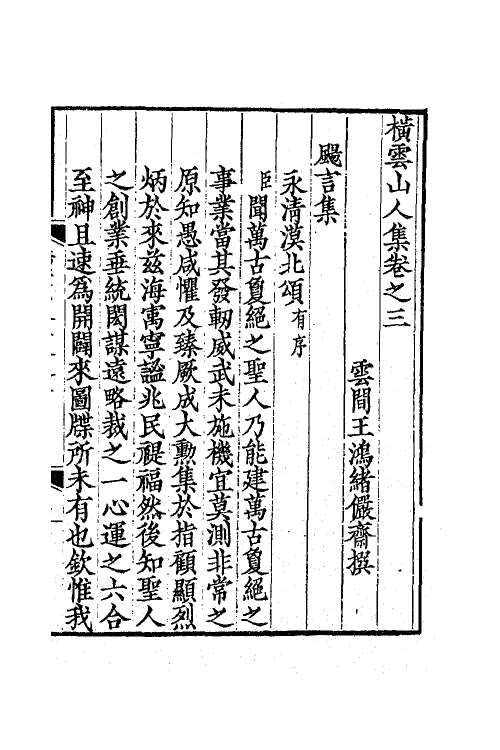 橫雲山人集卷之三
雲間王鴻緒儼齋撰
颺言集
永清漠北頌有序
臣聞萬古夐絕之聖人乃能建萬古夐絕之
事業當其發軔威武未施機宜莫測非常之
原知愚咸懼及臻厥成大勳集於指顧顯烈
炳於來茲海寓寧謐兆民禔福然後知聖人
之創業垂統閎謀遠略裁之一心運之六合
至神且速為開闢來圖牒所未有也欽惟我